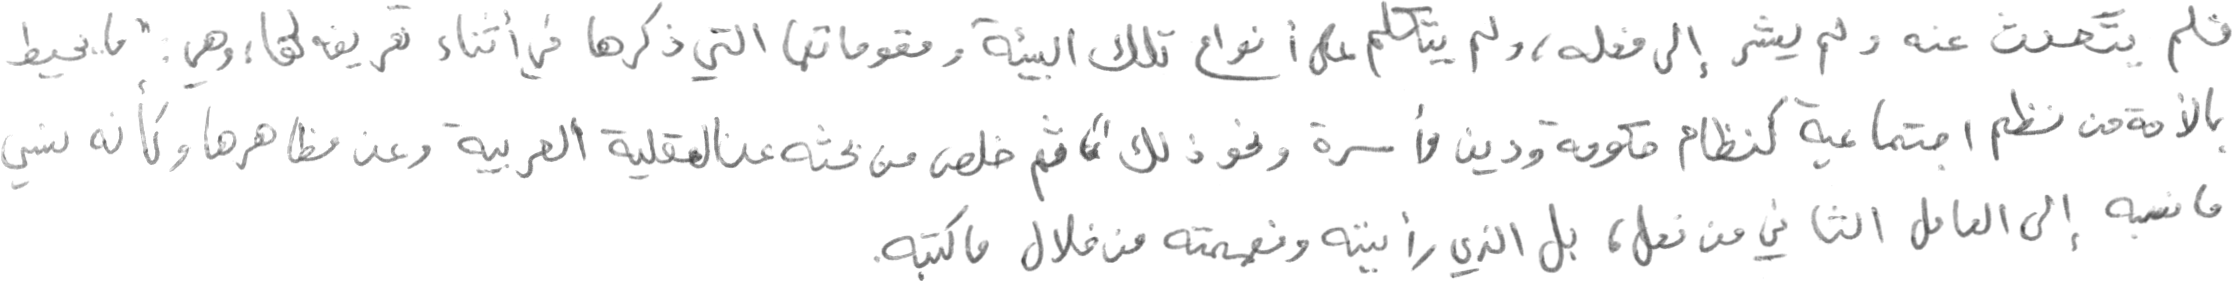 فلم يتحدث عنه ولم يشر إلى فعله، ولم يتكلم على أنواع تلك البيئة ومقوماتها التي ذكرها في أثناء تعريفه لها، وهي: "ما يحيط
بالأمة من نظم اجتماعية كنظام حكومة ودين وأسرة ونحو ذلك" ثم خلص من بحثه عن العقلية العربية وعن مظاهرها وكأنه نسي
ما نسبه إلى العامل الثاني من فعل، بل الذي رأيته وفهمته من خلال ما كتبه.